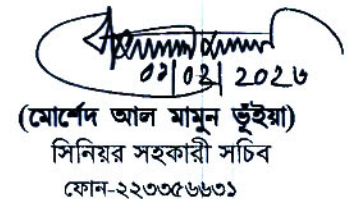 ০১|০২| ২০২৬
(মোর্শেদ আল মামুন ভূঁইয়া)
সিনিয়র সহকারী সচিব
ফোন-২২৩৩৫৬৬৩১